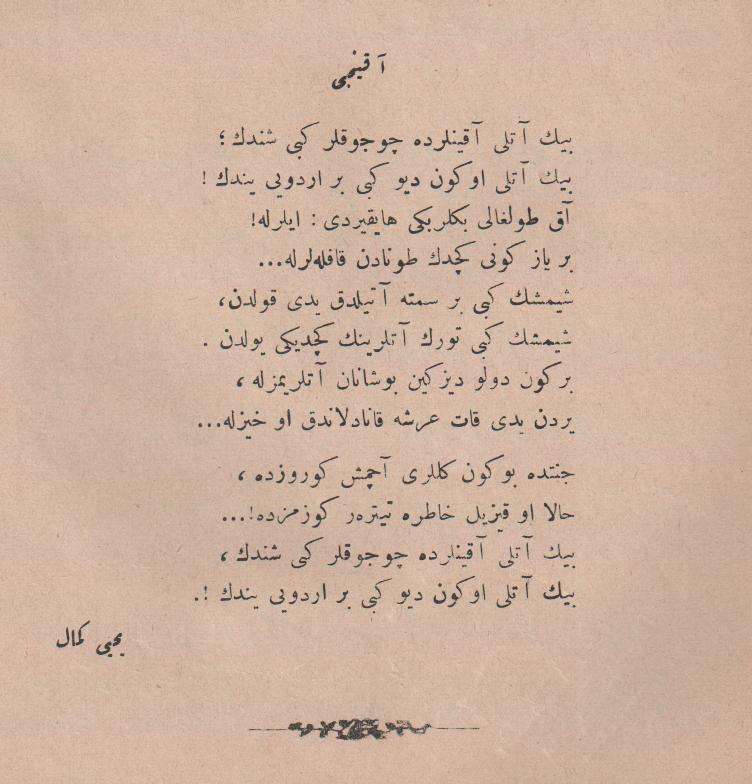 آقينجى
بيك آتلى آقينلرده چوجوقلر كبى شندك ؛
بيك آتلى اوكون ديو كبى بر اردويى يندك !
آق طولغالى بكلربكى هايقيردى : ايلرله!
بر ياز كونى كچدك طونادن قافله‌لرله...
شيمشك كبى بر سمته آتيلدق يدى قولدن،
شيمشك كبى تورك آتلرينك كچديكى يولدن .
بر كون دولو ديزكين بوشانان آتلريمزله ،
يردن يدى قات عرشه قانادلاندق او خيزله...
جنتده بوكون كللرى آچمش كوروزده ،
حالا او قيزيل خاطره تيتره‌ر كوزمزده!...
بيك آتلى آقينلرده چوجوقلر كبى شندك ،
بيك آتلى اوكون ديو كبى بر اردويى يندك !.
يحيى كمال